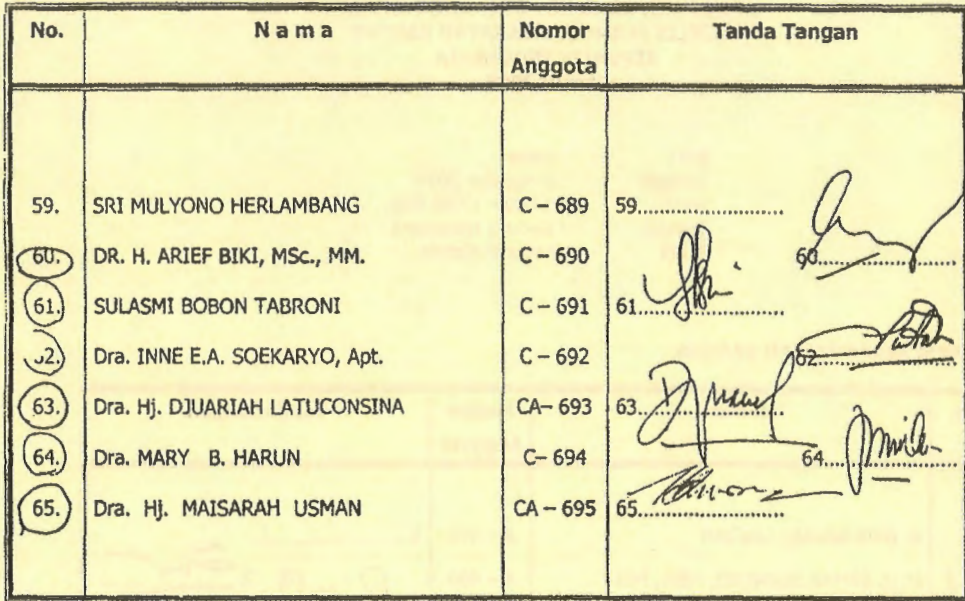 No. N a m a Nomor Anggota Tanda Tangan
59. SRI MULYONO HERLAMBANG C – 689 59....................
60. DR. H. ARIEF BIKI, MSc., MM. C – 690 60....................
61. SULASMI BOBON TABRONI C – 691 61....................
62. Dra. INNE E.A. SOEKARYO, Apt. C – 692 62....................
63. Dra. Hj. DJUARIAH LATUCONSINA CA– 693 63....................
64. Dra. MARY B. HARUN C– 694 64....................
65. Dra. Hj. MAISARAH USMAN CA – 695 65....................